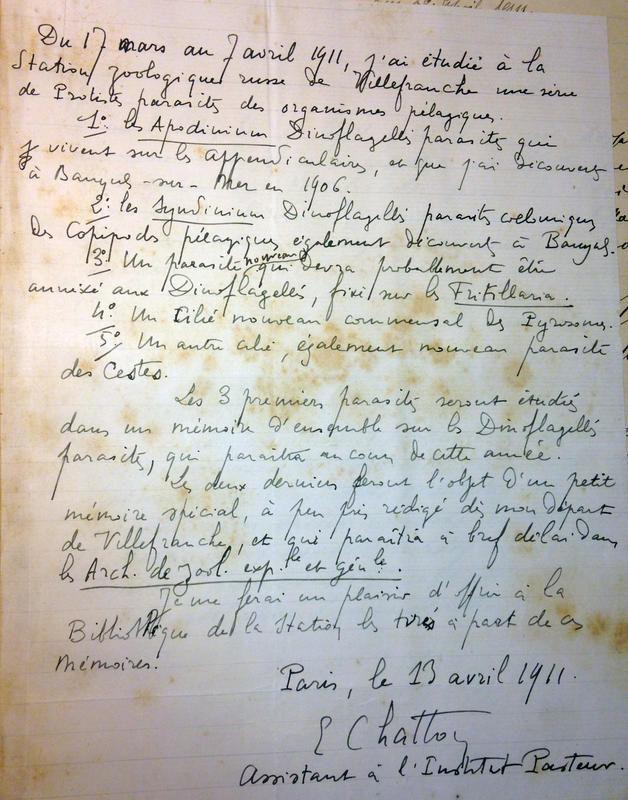 Du 17 mars au 7 avril 1911, j'ai étudié à la
Station zoologique russe de Villefranche une série
de Protistes parasites des organismes pélagiques.
1º les Apodinium Dinoflagellés parasites qui
vivent sur les appendiculaires, et que j'ai découverts
à Banyuls-sur-Mer en 1906.
2º les Syndinium Dinoflagellés parasites coelomiques
des Copépodes pélagiques également découverts à Banyuls.
3º Un parasite nouveau qui devra probablement être
annexé aux Dinoflagellés, fixé sur les Fritillaria.
4º Un Cilié nouveau commensal des Pyrosomes.
5º Un autre cilié, également nouveau parasite
des Cestes.
Les 3 premiers parasites seront étudiés
dans un mémoire d'ensemble sur les Dinoflagellés
parasites, qui paraîtra au cours de cette année.
Les deux derniers feront l'objet d'un petit
mémoire spécial, à peu près rédigé dès mon départ
de Villefranche, et qui paraîtra à bref délai dans
les Arch. de Zool. exp.le et gén.le.
Je me ferai un plaisir d'offrir à la
Bibliothèque de la Station les tirés à part de ces
mémoires.
Paris, le 13 avril 1911.
E Chatton
Assistant à l'Institut Pasteur.